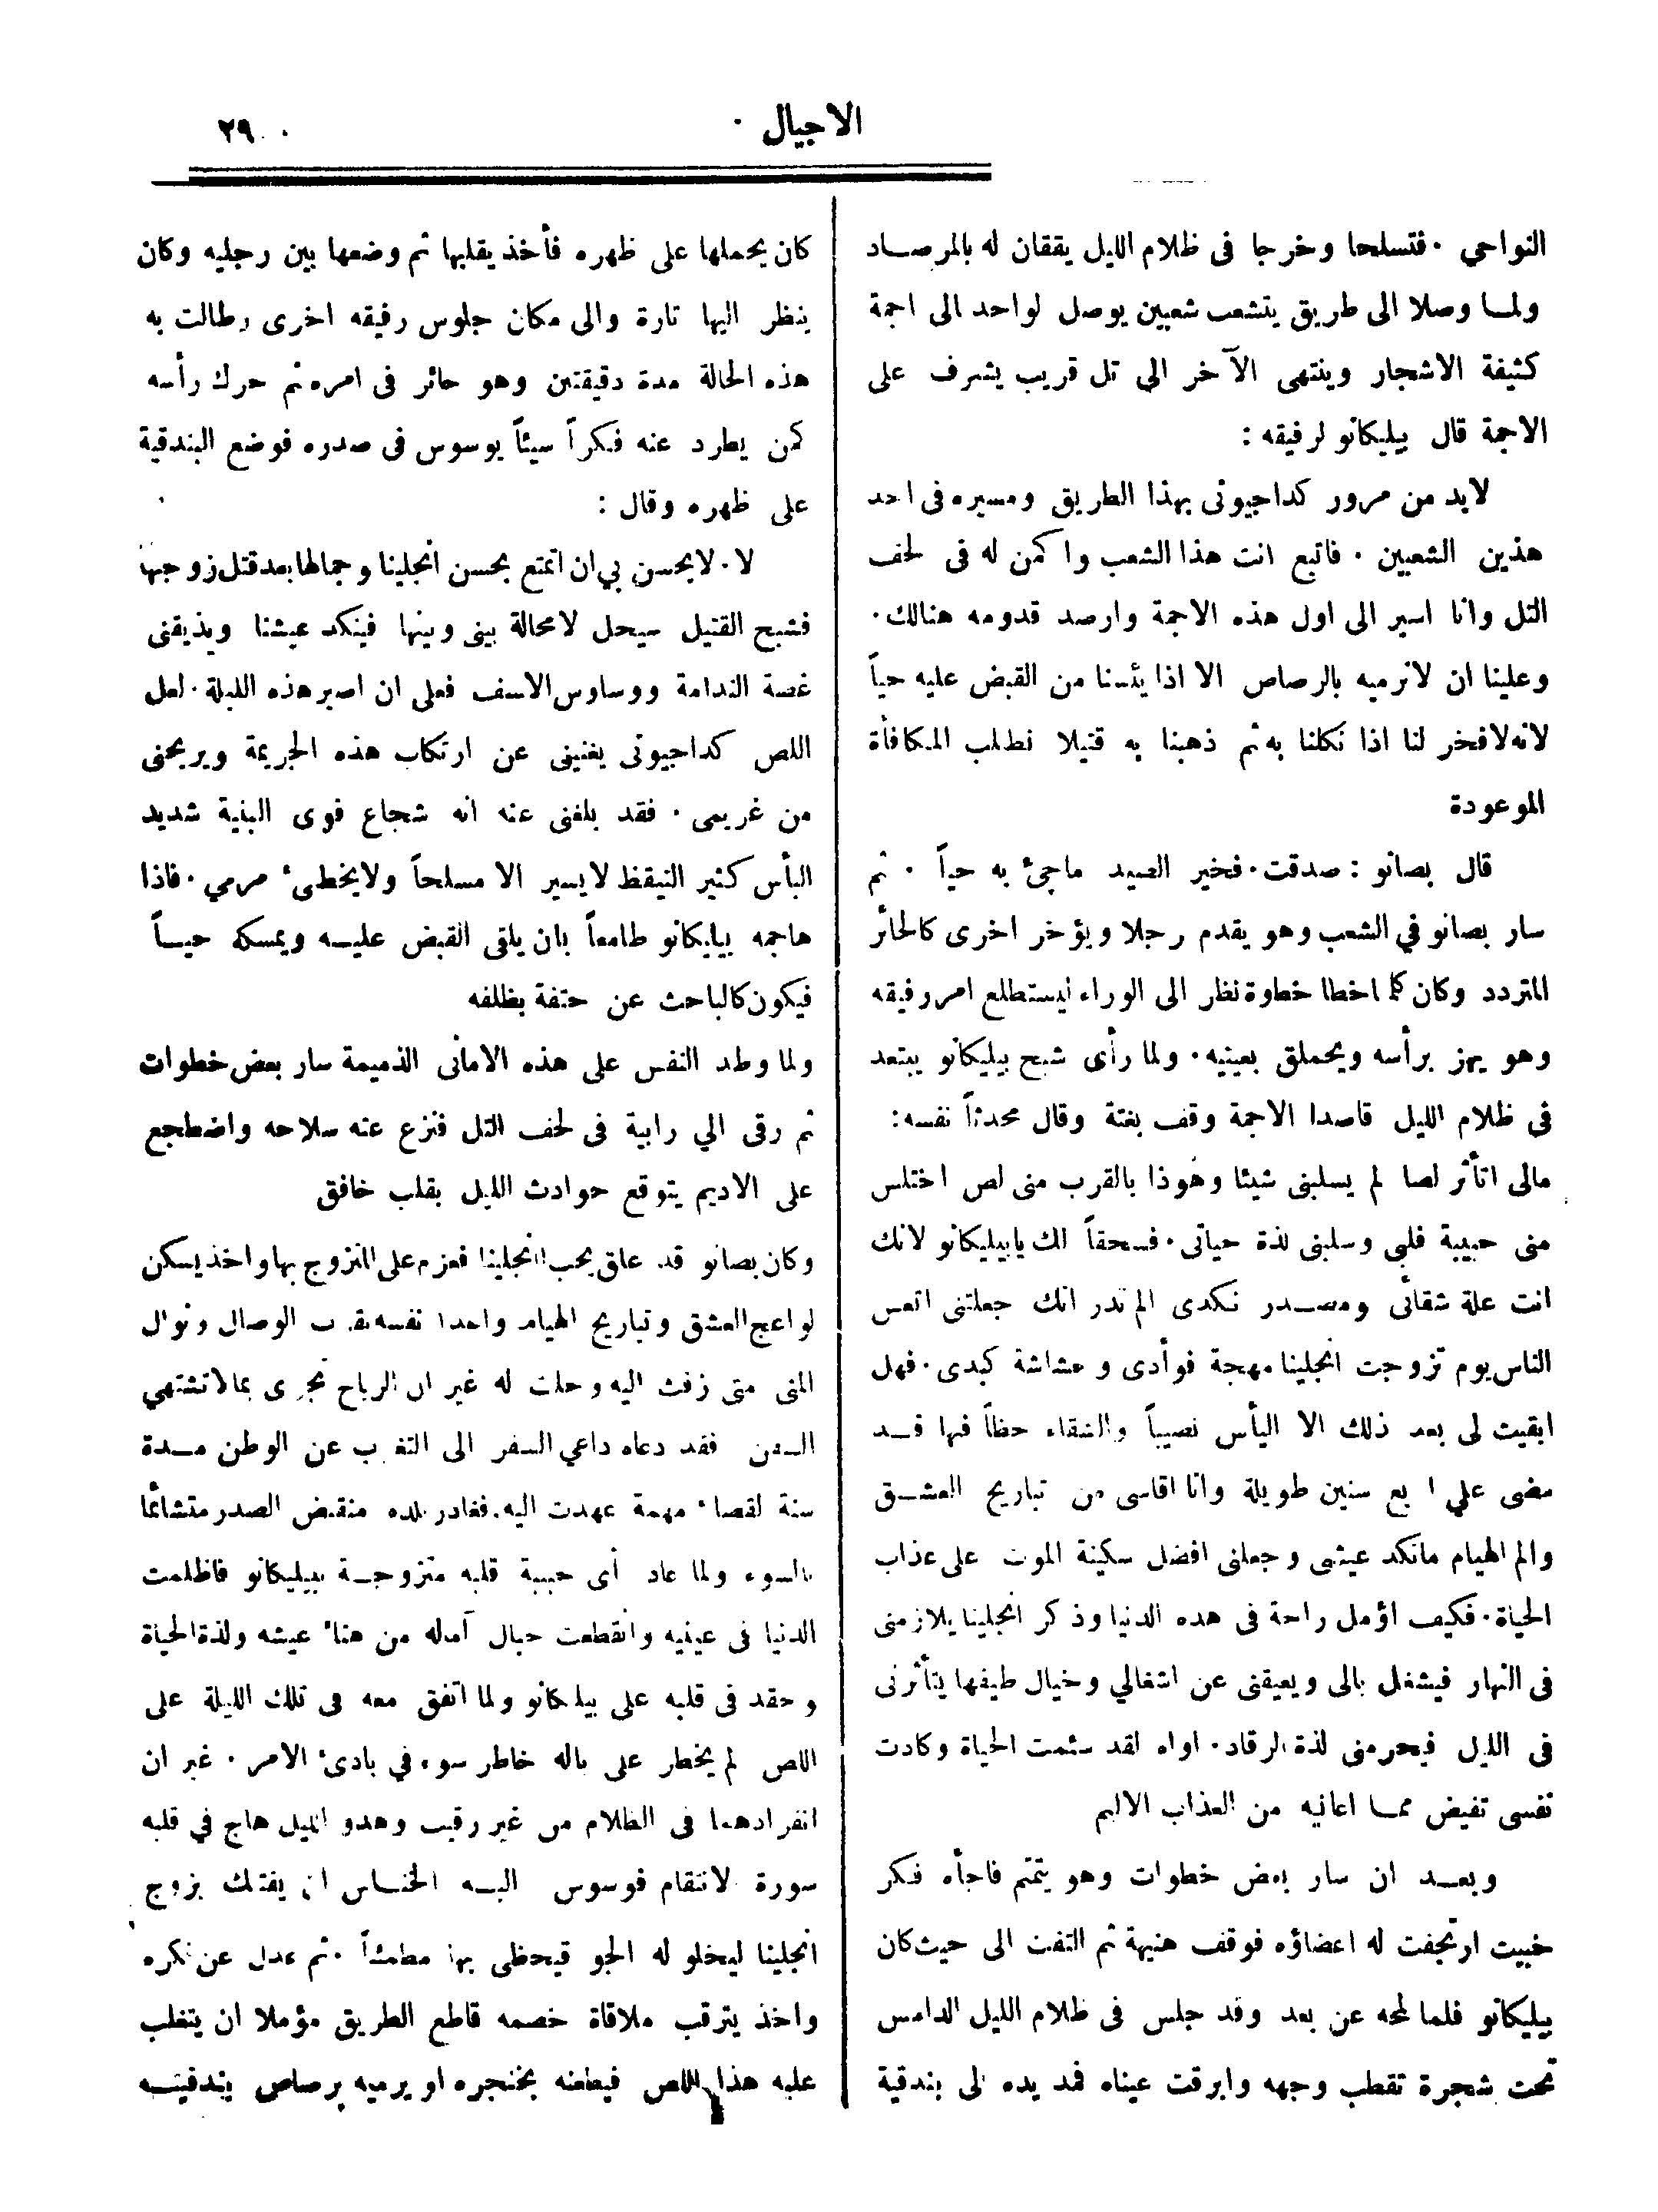 الاجيال ٠
٢٩٠
النواحي ٠ فتسلحا وخرجا فى ظلام الليل يقفان له بالمرصاد
ولما وصلا الى طريق يتشعب شعبين يوصل لواحد الى اجمة
كثيفة الاشجار وينتهى الآخر الي تل قريب يشرف على
الاجمة قال بيليكانو لرفيقه :
لابد من مرور كداجيوتى بهذا الطريق ومسيره فى احد
هذين الشعبين ٠ فاتبع انت هذا الشعب واكمن له فى لحف
التل وانا اسير الى اول هذه الاجمة وارصد قدومه هنالك ٠
وعلينا ان لانرميه بالرصاص الا اذا يئسنا من القبض عليه حياً
لانه لافخر لنا اذا نكلنا به ثم ذهبنا به قتيلا نطلب المكافأة
الموعودة
قال بصانو : صدقت ٠ فخير الصيد ماجئ به حياً ٠ ثم
سار بصانو في الشعب وهو يقدم رجلا ويؤخر اخرى كالحائر
المتردد وكان كلما خطا خطوة نظر الى الوراء ليستطلع امر رفيقه
وهو يهز برأسه ويحملق بعينيه ٠ ولما رأى شبح بيليكانو يبتعد
فى ظلام الليل قاصدا الاجمة وقف بغتة وقال محدثاً نفسه :
مالى اتأثر لصا لم يسلبنى شيئا وهوذا بالقرب منى لص اختلس
منى حبيبة قلبى وسلبنى لذة حياتى ٠ فسحقاً لك يابيليكانو لانك
انت علة شقائى ومصدر نكدى الم تدر انك جعلتنى اتعس
الناس يوم تزوجت انجلينا مهجة فوأدى وحشاشة كبدى ٠ فهل
ابقيت لى بعد ذلك الا اليأس نصيباً والشقاء حظاً فها قد
مضى علي اربع سنين طويلة وانا اقاسى من تباريح العشق
والم الهيام مانكد عيشى وجعلنى افضل سكينة الموت على عذاب
الحياة ٠ فكيف اؤمل راحة فى هده الدنيا وذكر انجلينا يلازمنى
فى النهار فيشغل بالى ويعيقنى عن اشغالي وخيال طيفها يتأثرنى
فى الليل فيحرمنى لذة الرقاد ٠ اواه لقد سئمت الحياة وكادت
نفسى تفيض مما اعانيه من العذاب الاليم
وبعد ان سار بعض خطوات وهو يتمتم فاجأه فكر
خبيث ارتجفت له اعضاؤه فوقف هنيهة ثم التفت الى حيث كان
بيليكانو فلما لمحه عن بعد وقد جلس فى ظلام الليل الدامس
تحت شجرة تقطب وجهه وابرقت عيناه فمد يده الى بندقية
كان يحملها على ظهره فأخذ يقلبها ثم وضعها بين رجليه وكان
ينظر اليها تارة والى مكان جلوس رفيقه اخرى وطالت به
هذه الحالة مدة دقيقتين وهو حائر فى امره ثم حرك رأسه
كمن يطرد عنه فكراً سيئاً يوسوس فى صدره فوضع البندقية
على ظهره وقال :
لا ٠ لايحسن بي ان اتمتع بحسن انجلينا وجمالها بعد قتل زوجها
فشبح القتيل سيحل لامحالة بينى وبينها فينكد عيشنا ويذيقنى
غصة الندامة ووساوس الاسف فعلى ان اصبر هذه الليلة ٠ لعل
اللص كداجيوتى يغنينى عن ارتكاب هذه الجريمة ويريحنى
من غريمى ٠ فقد بلغنى عنه انه شجاع قوى البنية شديد
البأس كثير التيقظ لايسير الا مسلحاً ولايخطىء مرمي ٠ فاذا
هاجمه بيليكانو طامعاً بان يلقى القبض عليه ويمسكه حياً
فيكون كالباحث عن حتفة بظلفه
ولما وطد النفس على هذه الامانى الذميمة سار بعض خطوات
ثم رقى الي رابية فى لحف التل فنزع عنه سلاحه واضطجع
على الاديم يتوقع حوادث الليل بقلب خافق
وكان بصانو قد علق بحب انجلينا فعزم على التزوج بها واخذ يسكن
لواعج العشق وتباريح الهيام واعدا نفسه بقرب الوصال ونوال
المنى متى زفت اليه وحلت له غير ان الرياح تجرى بمالاتشتهي
السفن فقد دعاه داعي السفر الى التغرب عن الوطن مدة
سنة لقضاء مهمة عهدت اليه. فغادر بلده منقبض الصدر متشائما
بالسوء ولما عاد رأى حبيبة قلبه متزوجة ببيليكانو فاظلمت
الدنيا فى عينيه وانقطعت حبال آمله من هناء عيشه ولذة الحياة
وحقد فى قلبه على بيليكانو ولما اتفق معه فى تلك الليلة على
اللص لم يخطر على باله خاطر سوء في بادئ الامر ٠ غير ان
انفرادهما فى الظلام من غير رقيب وهدو الليل هاج في قلبه
سورة الانتقام فوسوس اليه الخناس ان يفتك بزوج
انجلينا ليخلو له الجو فيحظى بها مطمئناً ٠ ثم عدل عن فكره
واخذ يترقب ملاقاة خصمه قاطع الطريق مؤملا ان يتغلب
عليه هذا اللص فيطعنه بخنجره او يرميه برصاص بندقيته